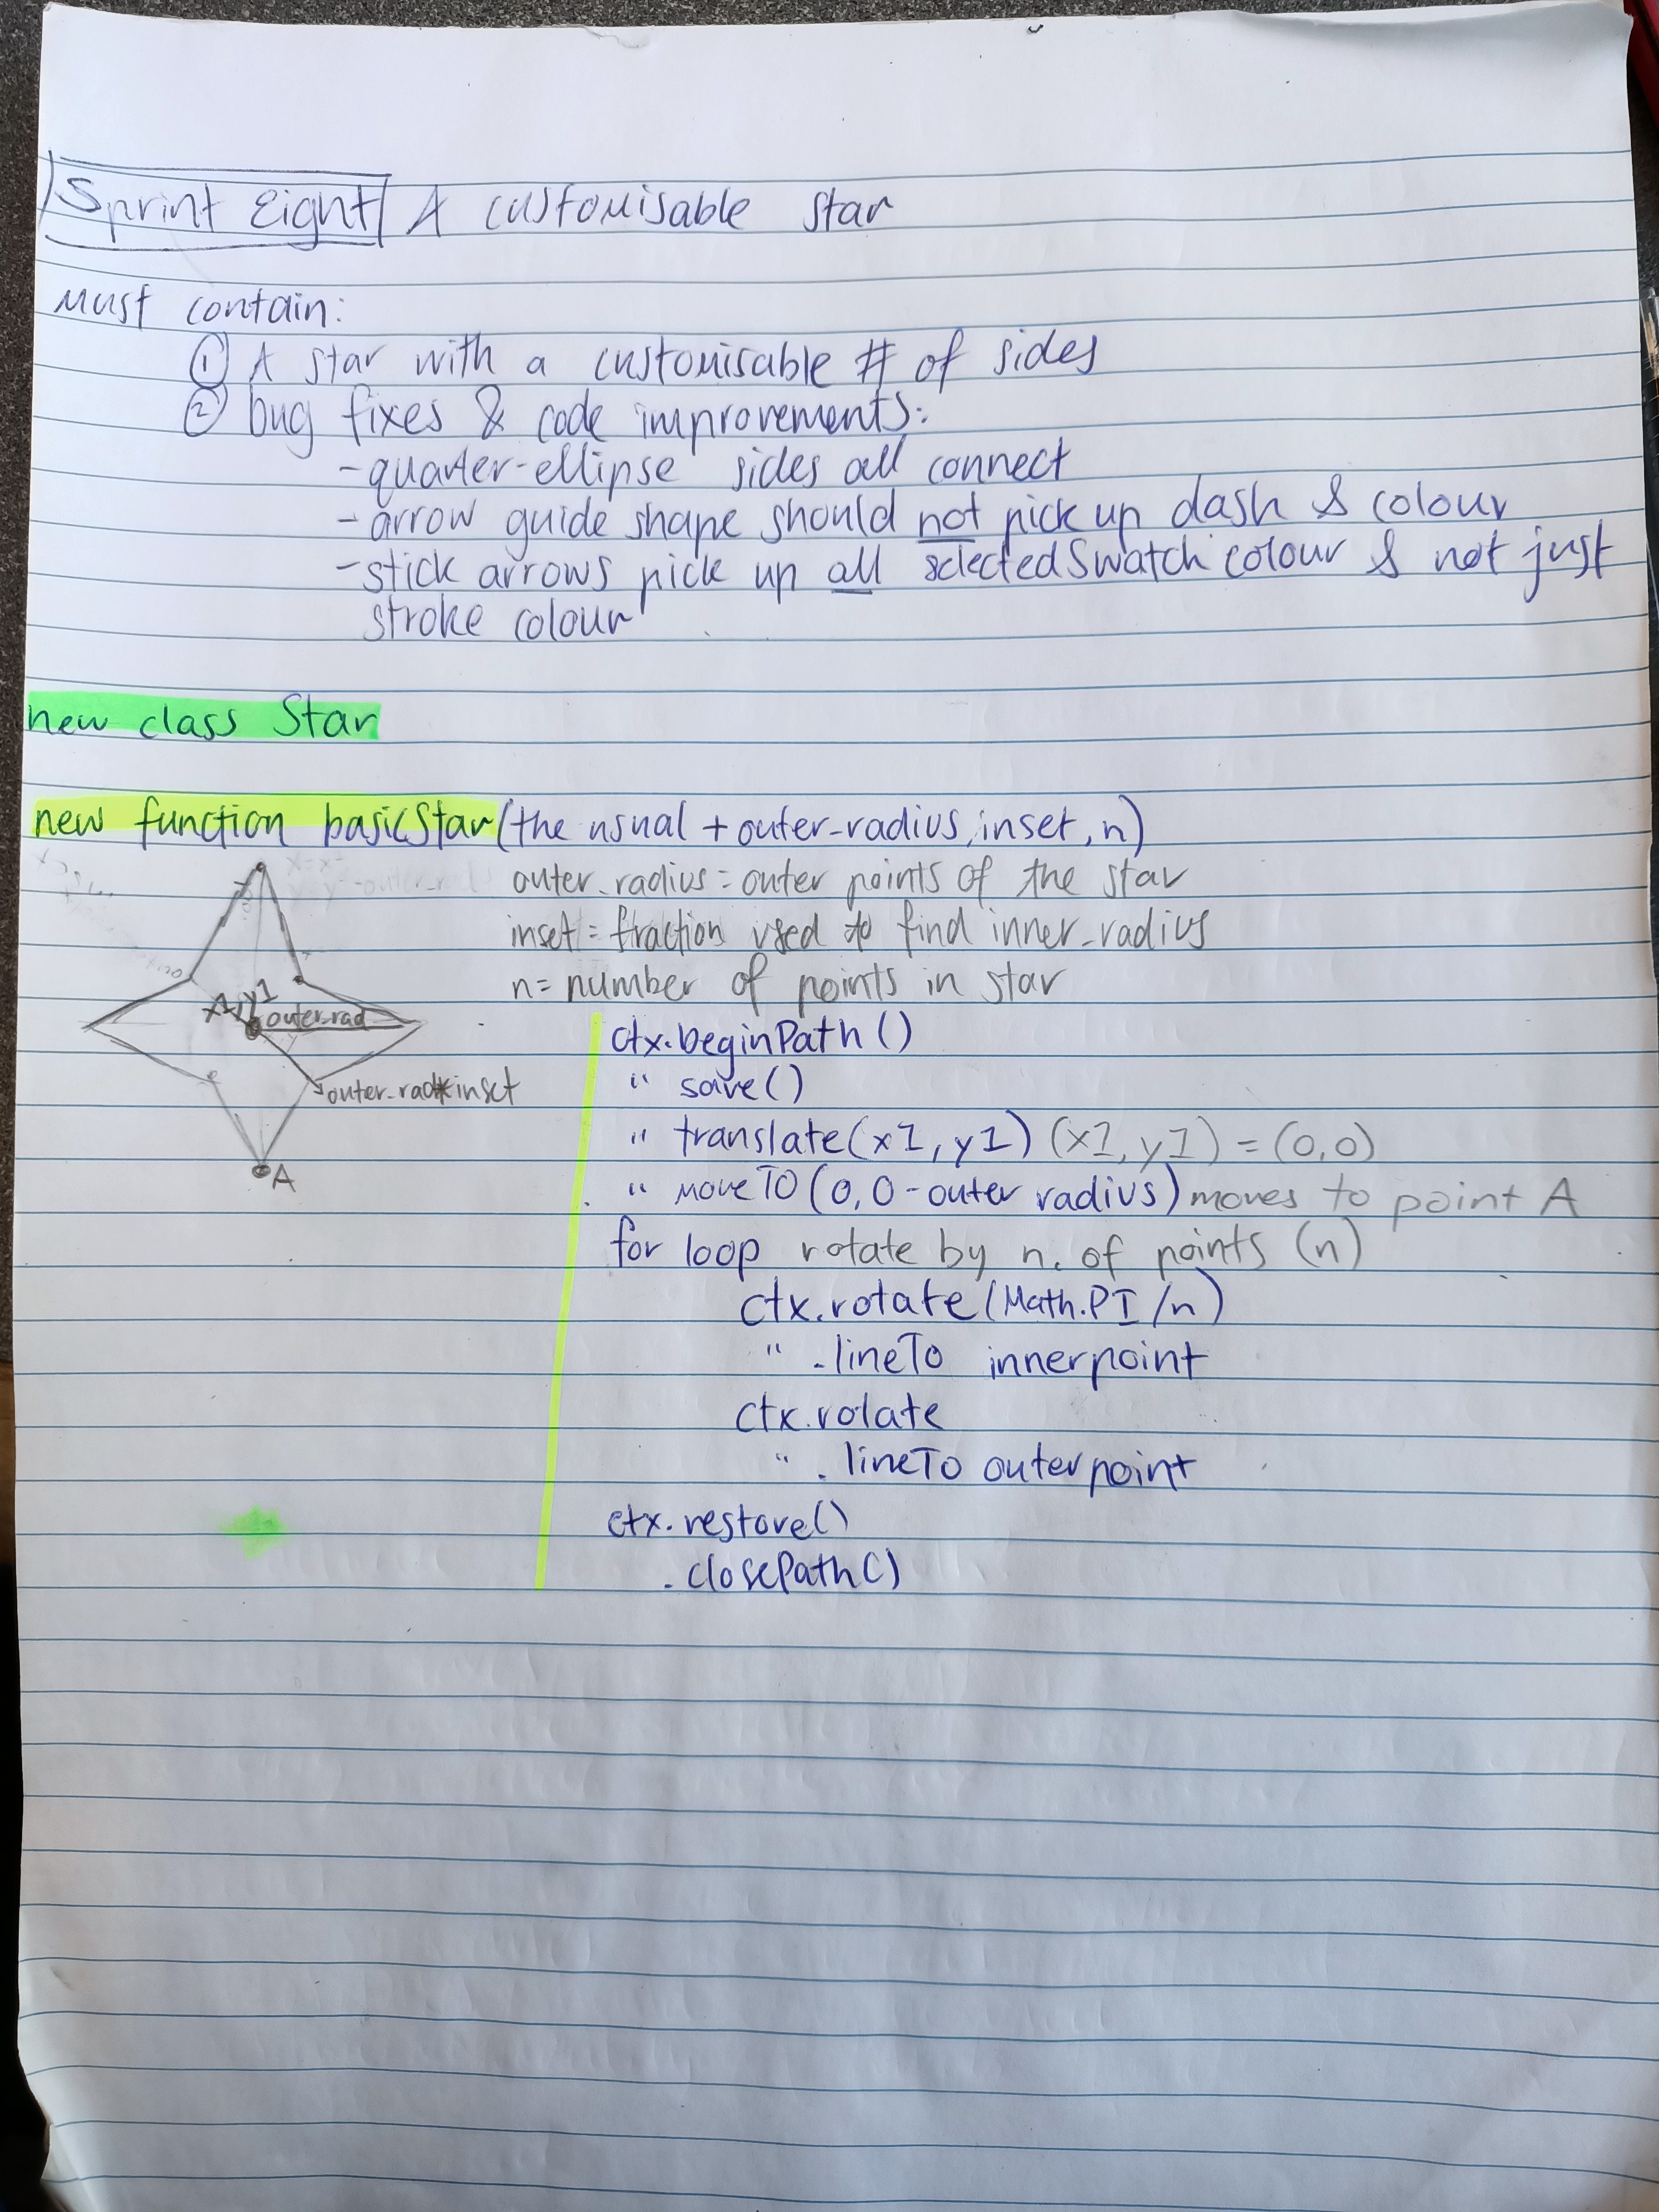 Sprint Eight A customisable star
Must contain:
① A star with a customisable # of sides
② bug fixes & code improvements:
- quarter-ellipse sides all connect
- arrow guide shape should not pick up dash & colour
- stick arrows pick up all selectedSwatch colour & not just
stroke colour
new class Star
new function basicStar(the usual + outer-radius, inset, n)
outer-radius = outer points of the star
inset = fraction used to find inner-radius
n = number of points in star
x1, y1
outer-rad
outer-rad*inset
A
ctx.beginPath()
" save()
" translate(x1, y1) (x1, y1) = (0,0)
" moveTO (0, 0 - outer radius) moves to point A
for loop rotate by n. of points (n)
ctx.rotate(Math.PI/n)
" .lineTo innerpoint
ctx.rotate
" .lineTo outerpoint
ctx.restore()
.closePath()